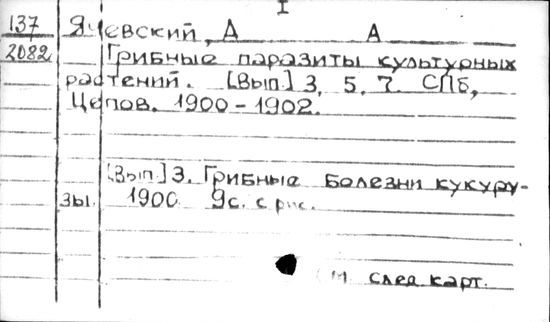 I
137
2082
Ячевский, А А
Грибные паразиты культурных
растений. [Вып.] 3, 5, 7. СПб,
Цепов. 1900-1902.
[Вып.] 3. Грибные болезни кукуру-
зы. 1900 9с. с рис.
след. карт.